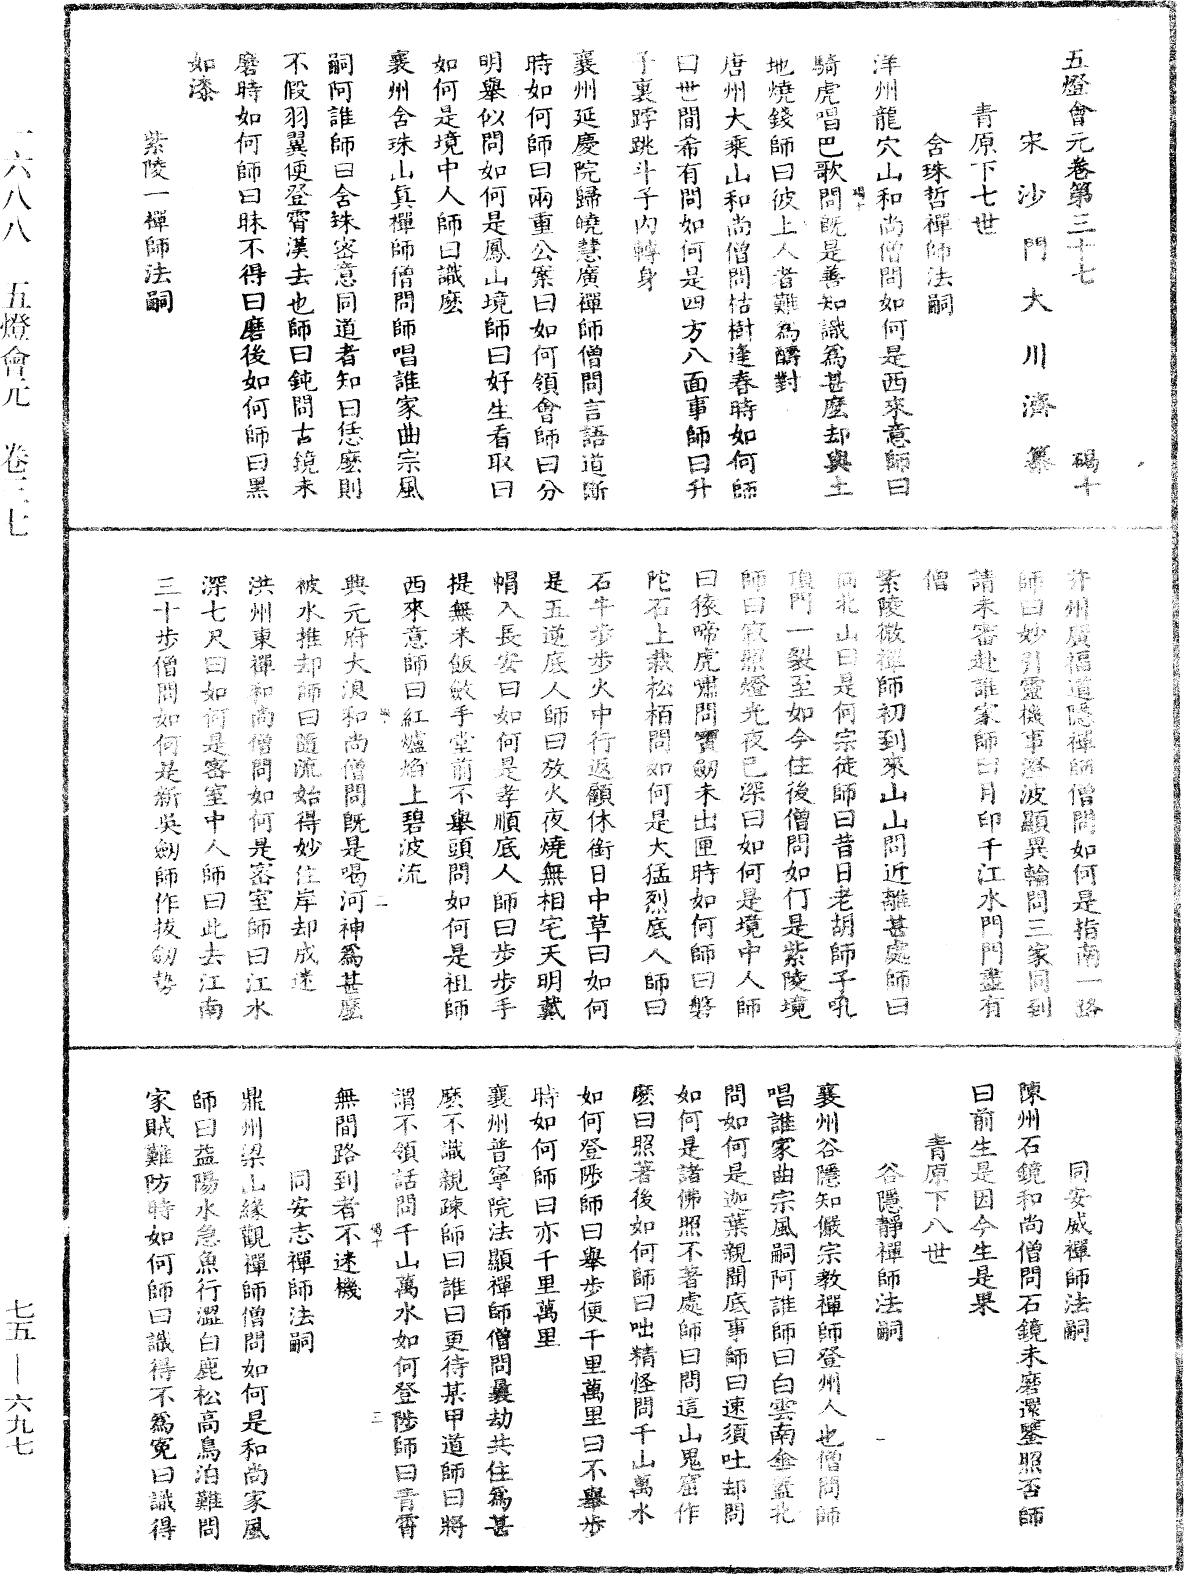 五燈會元卷第三十七 碣十
宋沙門大川濟纂
青原下七世
含珠哲禪師法嗣
洋州龍穴山和尚僧問如何是西來意師曰
騎虎唱巴歌問旣是善知識爲甚麼却與土
地燒錢師曰彼上人者難爲醻對
唐州大乘山和尚僧問枯樹逢春時如何師
曰世間希有問如何是四方八面事師曰升
子裏𨁝跳斗子內轉身
襄州延慶院歸曉慧廣禪師僧問言語道斷
時如何師曰兩重公案曰如何領會師曰分
明舉似問如何是鳳山境師曰好生看取曰
如何是境中人師曰識麼
襄州含珠山真禪師僧問師唱誰家曲宗風
嗣阿誰師曰含珠密意同道者知曰恁麼則
不假羽翼便登霄漢去也師曰鈍問古鏡未
磨時如何師曰昧不得曰磨後如何師曰黑
如漆
紫陵一禪師法嗣
許州廣福道隱禪師僧問如何是指南一路
師曰妙引靈機事澄波顯異輪問三家同到
請未審赴誰家師曰月印千江水門門盡有
僧
紫陵微禪師初到夾山山問近離甚處師曰
向北山曰是何宗徒師曰昔日老胡師子吼
頂門一裂至如今住後僧問如何是紫陵境
師曰寂照燈光夜已深曰如何是境中人師
曰猿啼虎嘯問寶劒未出匣時如何師曰磐
陀石上栽松栢問如何是大猛烈底人師曰
石牛步步火中行返顧休銜日中草曰如何
是五逆底人師曰放火夜燒無相宅天明戴
帽入長安曰如何是孝順底人師曰步步手
提無米飯斂手堂前不舉頭問如何是祖師
西來意師曰紅爐焰上碧波流
興元府大浪和尚僧問旣是喝河神爲甚麼
被水推却師曰隨流始得妙住岸却成迷
洪州東禪和尚僧問如何是密室師曰江水
深七尺曰如何是密室中人師曰此去江南
三十步僧問如何是新吳劒師作拔劒勢
同安威禪師法嗣
陳州石鏡和尚僧問石鏡未磨還鑒照否師
曰前生是因今生是果
青原下八世
谷隱靜禪師法嗣
襄州谷隱知儼宗教禪師登州人也僧問師
唱誰家曲宗風嗣阿誰師曰白雲南傘蓋北
問如何是迦葉親聞底事師曰速須吐却問
如何是諸佛照不著處師曰問這山鬼窟作
麼曰照著後如何師曰咄精怪問千山萬水
如何登陟師曰舉步便千里萬里曰不舉步
時如何師曰亦千里萬里
襄州普寧院法顯禪師僧問曩劫共住爲甚
麼不識親疎師曰誰曰更待某甲道師曰將
謂不領話問千山萬水如何登陟師曰青霄
無間路到者不迷機
同安志禪師法嗣
鼎州梁山緣觀禪師僧問如何是和尚家風
師曰益陽水急魚行澀白鹿松高鳥泊難問
家賊難防時如何師曰識得不爲冤曰識得
一六八八 五燈會元 卷三七
七五—六九七